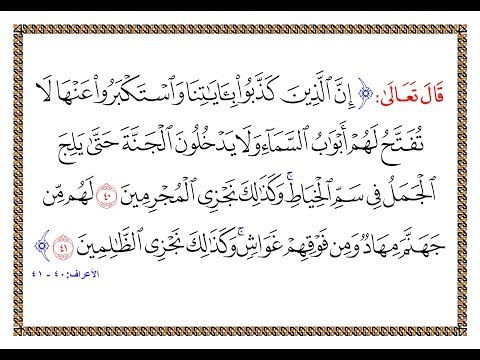 قَالَ تَعَالَىٰ: ﴿ إِنَّ ٱلَّذِينَ كَذَّبُواْ بِـَٔايَٰتِنَا وَٱسۡتَكۡبَرُواْ عَنۡهَا لَا
تُفَتَّحُ لَهُمۡ أَبۡوَٰبُ ٱلسَّمَآءِ وَلَا يَدۡخُلُونَ ٱلۡجَنَّةَ حَتَّىٰ يَلِجَ
ٱلۡجَمَلُ فِي سَمِّ ٱلۡخِيَاطِۚ وَكَذَٰلِكَ نَجۡزِي ٱلۡمُجۡرِمِينَ ٤٠ لَهُم مِّن
جَهَنَّمَ مِهَادٞ وَمِن فَوۡقِهِمۡ غَوَاشٖۚ وَكَذَٰلِكَ نَجۡزِي ٱلظَّٰلِمِينَ ٤١ ﴾
الأعراف: ٤٠ - ٤١